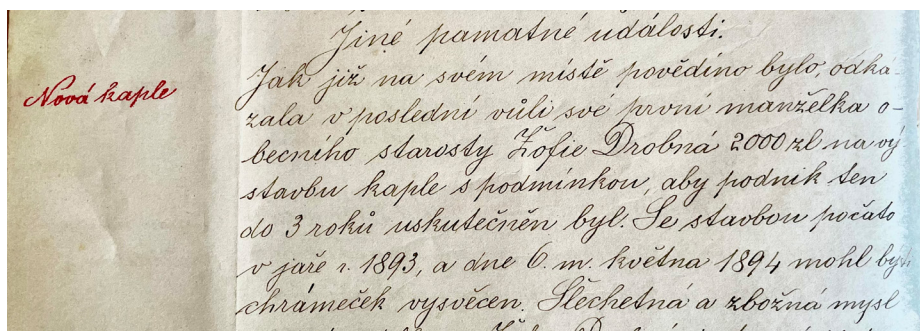 Jiné památné události.
Nová kaple
Jak již na svém místě povědíno bylo, odka-
zala v poslední vůli své první manželka o-
becního starosty Žofie Drobná 2000 zl na vý
stavbu kaple s podmínkou, aby podnik ten
do 3 roků uskutečněn byl. Se stavbou počato
v jaře r. 1893, a dne 6. m. května 1894 mohl býti
chrámeček vysvěcen. Šlechetná a zbožná mysl
Drobná